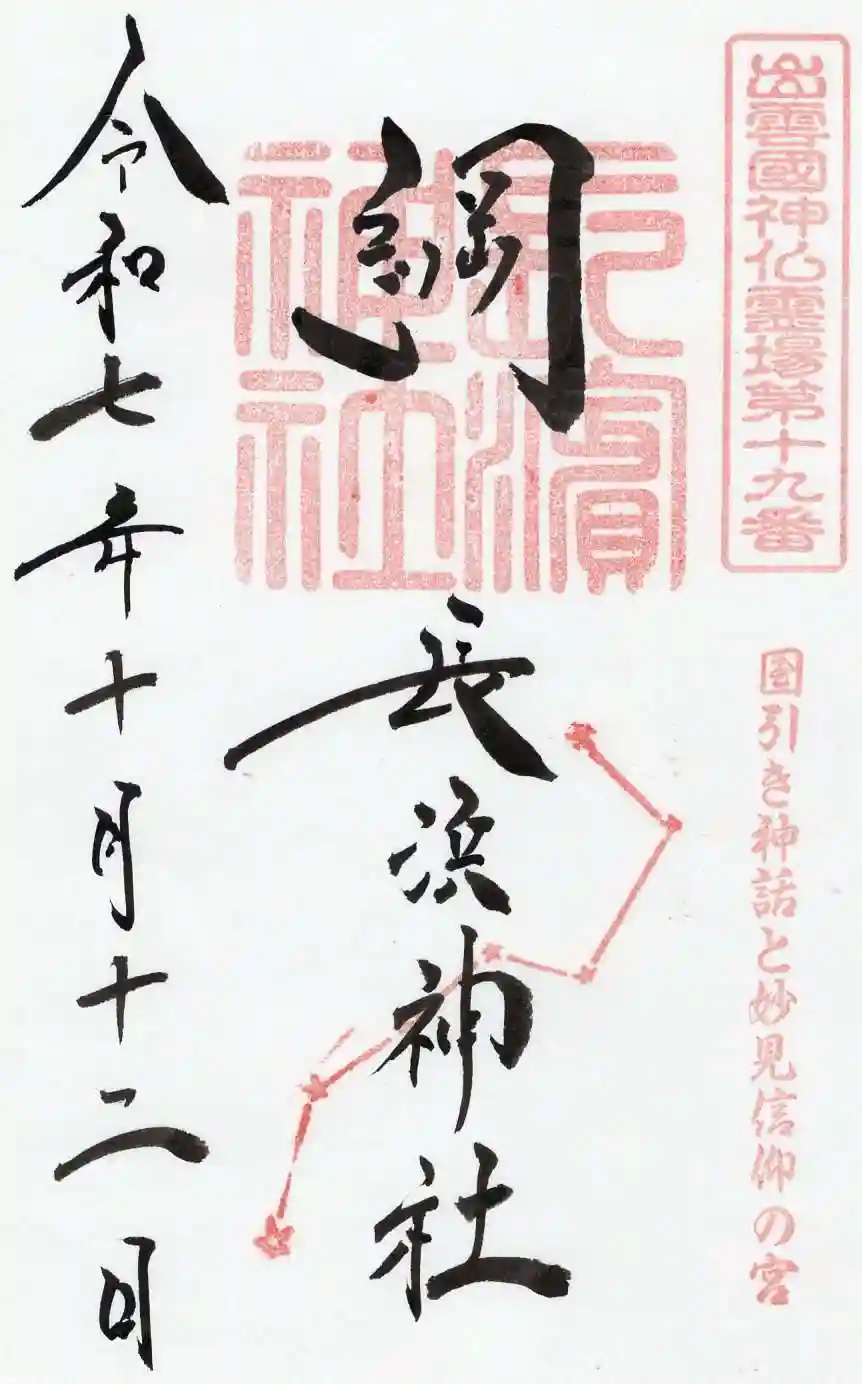 出雲國神仏霊場第十九番
国引き神話と妙見信仰の宮
長濱
神社
綱
長浜神社
令和七年十月十二日